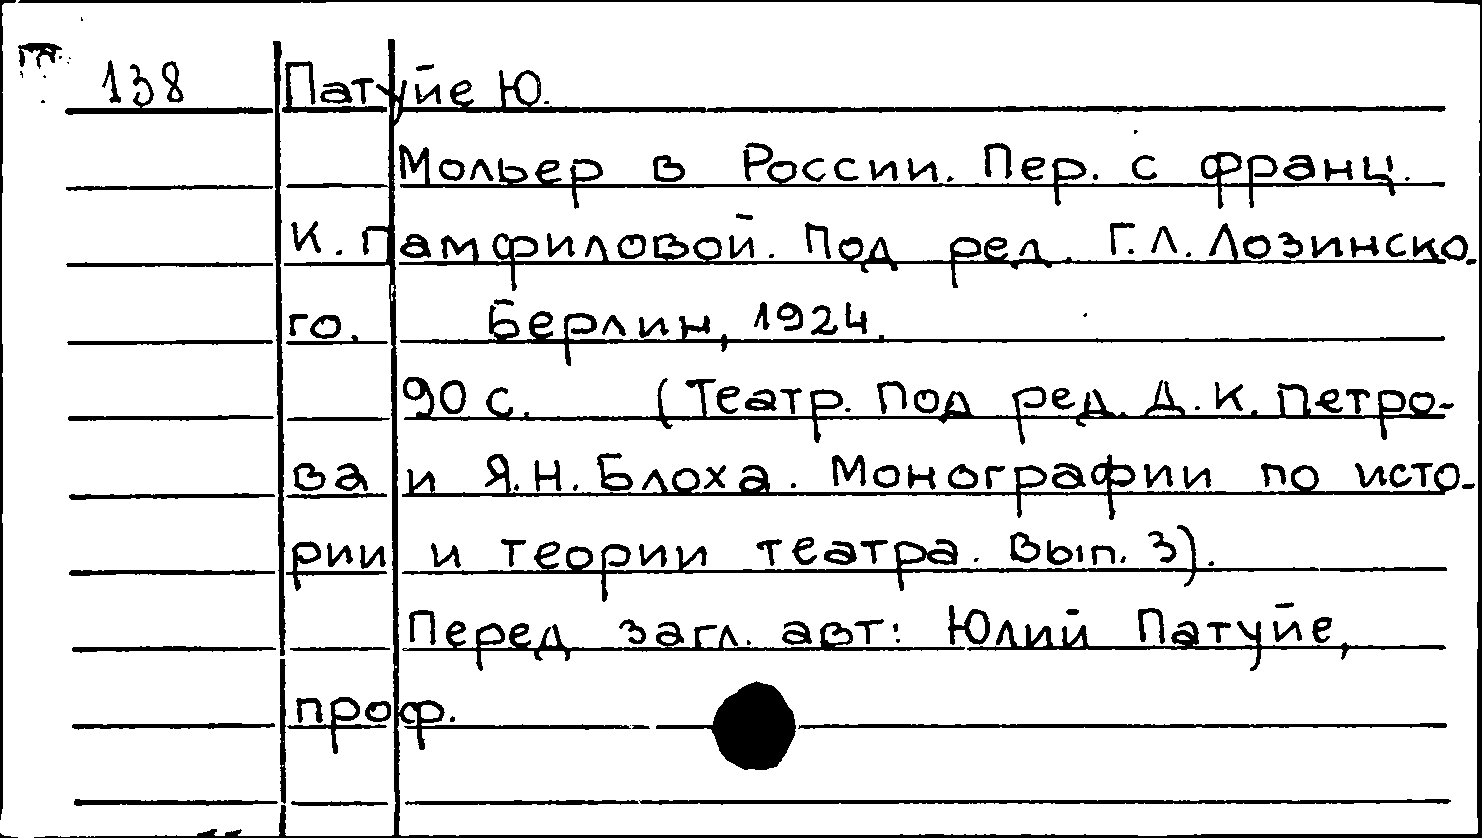 138 Патуйе Ю.
Мольер в России. Пер. с франц.
К. Памфиловой. Под ред. Г.Л. Лозинско-
го. Берлин, 1924.
90 с. (Театр. Под ред. Д.К. Петро-
ва и Я.Н. Блоха. Монографии по исто-
рии и теории театра. Вып. 3).
Перед загл. авт: Юлий Патуйе,
проф.